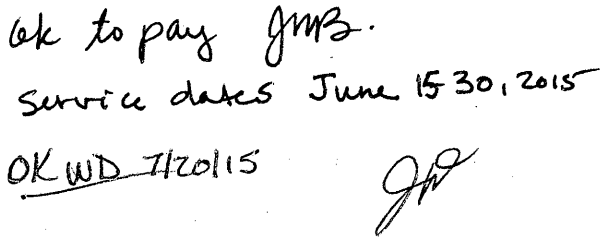 ok to pay JMB.
Service dates June 15-30, 2015
OK WD 7/20/15